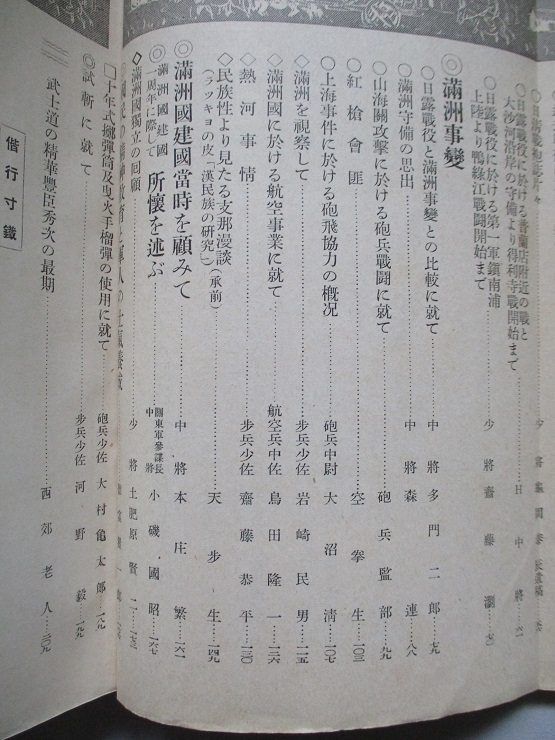 ◎日露戰役に於ける普蘭店附近の戰と
大沙河沿岸の守備より得利寺戰開始まで
◎日露戰役に於ける第一軍鎭南浦
上陸より鴨綠江戰鬪開始まで 少將 齋藤瀏
◎滿洲事變
○日露戰役と滿洲事變との比較に就て 中將 多門二郎…七九
○滿洲守備の思出 中將 森連…八八
○山海關攻擊に於ける砲兵戰鬪に就て 砲兵監部…九九
○紅槍會匪 空拳生…一〇三
○上海事件に於ける砲飛協力の槪況 砲兵中尉 大沼淸…一〇七
◇滿洲を視察して 步兵少佐 岩崎民男…一一五
◇滿洲國に於ける航空事業に就て 航空兵中佐 島田隆一…一二六
◇熱河事情 步兵少佐 齋藤恭平…一三〇
○民族性より見たる支那漫談(承前)
(ラッキョの皮「漢民族の研究」) 天步生…一四九
◎滿洲國建國當時を顧みて 中將 本庄繁…一六一
滿洲國建國
一周年に際して 所懷を述ぶ 關東軍參謀長
中將 小磯國昭…一六七
◇滿洲國獨立の回顧 少將 土肥原賢二…一七三
□十年式擲彈筒及曳火手榴彈の使用に就て 砲兵少佐 大村龜太郎…一八九
◎試斬に就て 步兵少佐 河野毅
武士道の精華豐臣秀次の最期 西郊老人…二〇九
偕行寸鐵